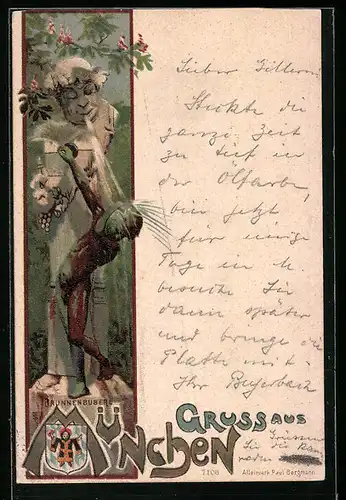 Lieber Zittern
Steckte die
ganze Zeit
zu tief in
der Ölfarbe,
bin jetzt
für einige
Tage in M.
besuche Sie
dann später
und bringe die
Platte mit
Ihr
BRUNNENBUBERL
GRUSS AUS
MÜNCHEN
Grüssen
Sie die
7108 Alleinverk. Paul Bergmann